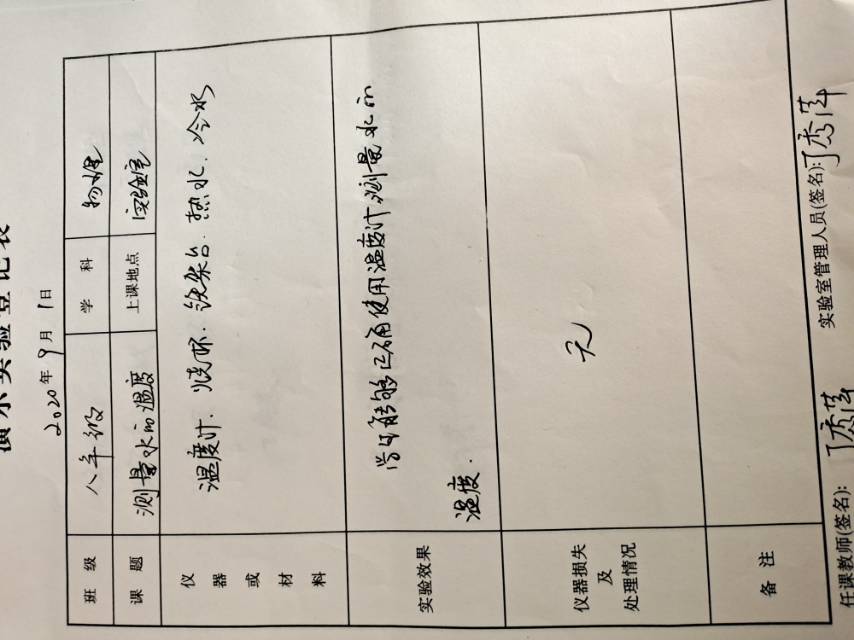 演示实验登记表
2020年9月1日
班级 八年级 学科 物理
课题 测量水的温度 上课地点 实验室
仪器或材料 温度计.烧杯.铁架台.热水.冷水
实验效果 学生能够正确使用温度计测量水的
温度.
仪器损失及处理情况 无
备注
任课教师(签名): 丁秀萍 实验室管理人员(签名): 丁秀萍